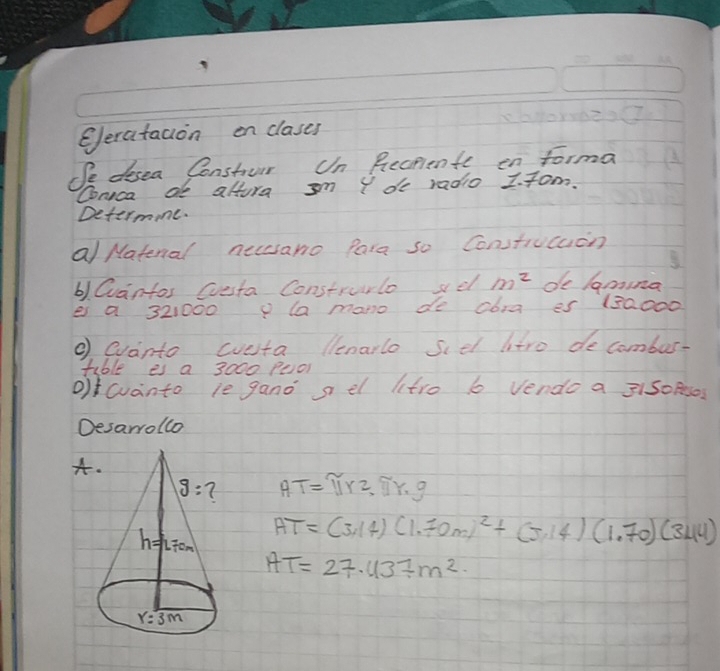 Ejercitación en clases
Se desea Construir Un Recipiente en forma
Conica de altura 3m y de radio 1.70m.
Determine.
a) Material necesario Para so Construcción
b) Cuántos Cuesta Construirlo si el m² de lamina
es a 321000 y la mano de obra es 130.000
c) Cuánto cuesta llenarlo Si el litro de combus-
tible es a 3000 Pesos
D) Cuánto le gano si el litro lo vendo a 3150 Pesos
Desarrollo
A.
g:?
h=1.70m
r:3m
AT=πr2. πr.g
AT=(3,14)(1.70m)²+(3,14)(1.70)(3.44)
AT=27.437m².